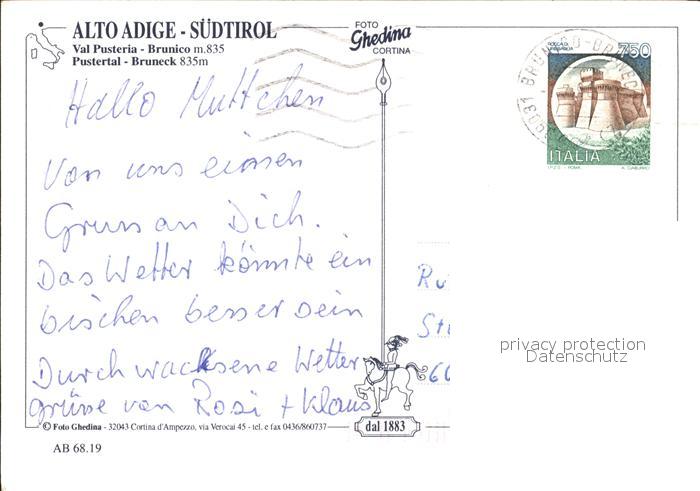 ALTO ADIGE - SÜDTIROL
Val Pusteria - Brunico m.835
Pustertal - Bruneck 835m
FOTO
Ghedina
CORTINA
750
ITALIA
Hallo Muttchen
Von uns einen
Gruss an Dich.
Das Wetter könnte ein
bischen besser sein
Durchwachsene Wetter
grüsse von Rosi + Klaus
Ru
St
60
privacy protection
Datenschutz
© Foto Ghedina - 32043 Cortina d'Ampezzo, via Verocai 45 - tel. e fax 0436/860737
dal 1883
AB 68.19